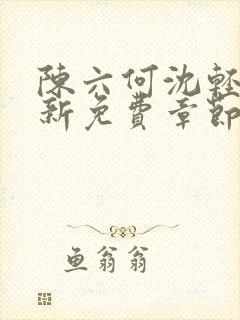 陳六何沈輕
新免費章節
魚翁翁